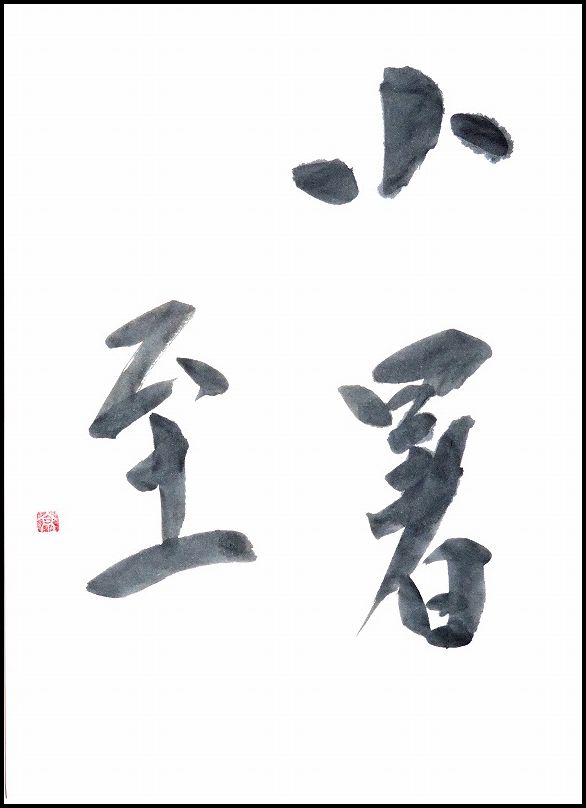 小暑
至